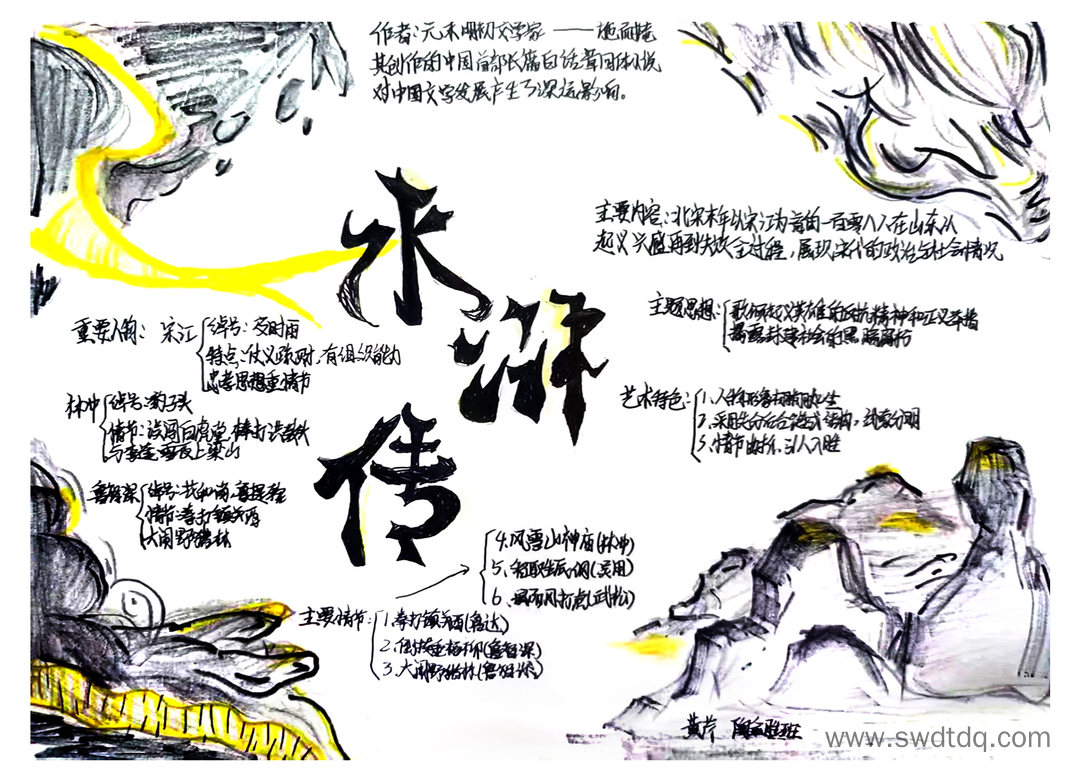 作者:元末明初文学家——施耐庵
其创作的中国首部长篇白话章回体小说
对中国文学发展产生了深远影响。
水浒传
主要内容:北宋末年以宋江为首的一百零八人在山东从
起义兴盛再到失败全过程,展现宋代的政治与社会情况
主题思想:歌颂起义英雄的反抗精神和正义
暴露封建社会的黑暗腐朽
艺术特色:1.人物形象栩栩如生
2.采用先分后合链式结构,线索分明
3.情节曲折,引人入胜
重要人物:宋江
绰号:及时雨
特点:仗义疏财,有组织能力
忠孝思想重情节
林冲
绰号:豹子头
情节:误闯白虎堂,棒打洪教头
雪夜上梁山
鲁智深
绰号:花和尚,鲁提辖
情节:拳打镇关西
大闹野猪林
主要情节:1.拳打镇关西(鲁达)
2.倒拔垂杨柳(鲁智深)
3.大闹野猪林(鲁智深)
4.风雪山神庙(林冲)
5.智取生辰纲(吴用)
6.景阳冈打虎(武松)
www.swdtdq.com